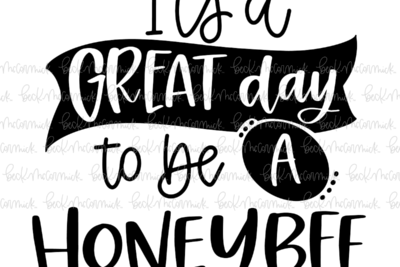 It's a
GREAT day
to be A
HONEYBEE